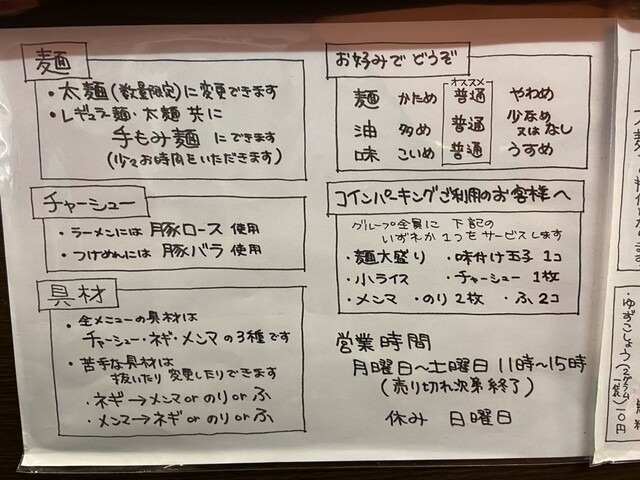 麺
・太麺(数量限定)に変更できます
・レギュラー麺・太麺 共に
手もみ麺 にできます
(少々お時間をいただきます)
チャーシュー
・ラーメンには 豚ロース 使用
・つけめんには 豚バラ 使用
具材
・全メニューの具材は
チャーシュー・ネギ・メンマの3種です
・苦手な具材は
抜いたり変更したりできます
・ネギ→メンマorのりorふ
・メンマ→ネギorのりorふ
お好みでどうぞ
オススメ
麺 かため 普通 やわめ
油 多め 普通 少なめ
又はなし
味 こいめ 普通 うすめ
コインパーキングご利用のお客様へ
グループ全員に 下記の
いずれか1つをサービスします
・麺大盛り ・味付け玉子 1コ
・小ライス ・チャーシュー 1枚
・メンマ ・のり2枚 ・ふ2コ
営業時間
月曜日〜土曜日 11時〜15時
(売り切れ次第終了)
休み 日曜日
・ゆずこしょう
10円